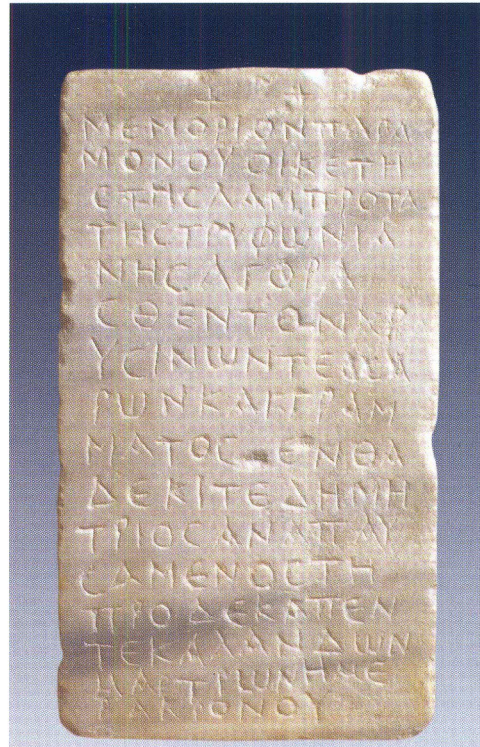 ΜΕΜΟΡΙΟΝΠΑΡΑ
ΜΟΝΟΥΟΙΚΕΤΗ
ϹΤΗϹΛΑΜΠΡΟΤΑ
ΤΗϹΤΡΥΦΩΝΙΑ
ΝΗϹΑΓΟΡΑ
ϹΘΕΝΤΟΝΧΡ
ΥϹΙΝΩΝΤΕϹϹΑ
ΡΩΝΚΑΙΓΡΑΜ
ΜΑΤΟϹ ΕΝΘΑ
ΔΕΚΙΤΕΔΗΜΗ
ΤΡΙΟϹΑΝΑΠΑΥ
ϹΑΜΕΝΟϹΤΗ
ΠΡΟΔΕΚΑΠΕΝ
ΤΕΚΑΛΑΝΔΩΝ
ΜΑΡΤΙΩΝΗΜΕ
ΡΑΚΙΟΝΟΥ